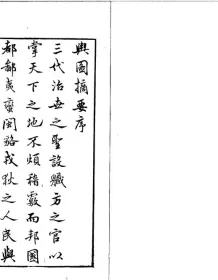 輿圖摘要序
三代治世之聖設職方之官以
掌天下之地不煩稽覈而邦國
都鄙夷蠻閩貉戎狄之人民與